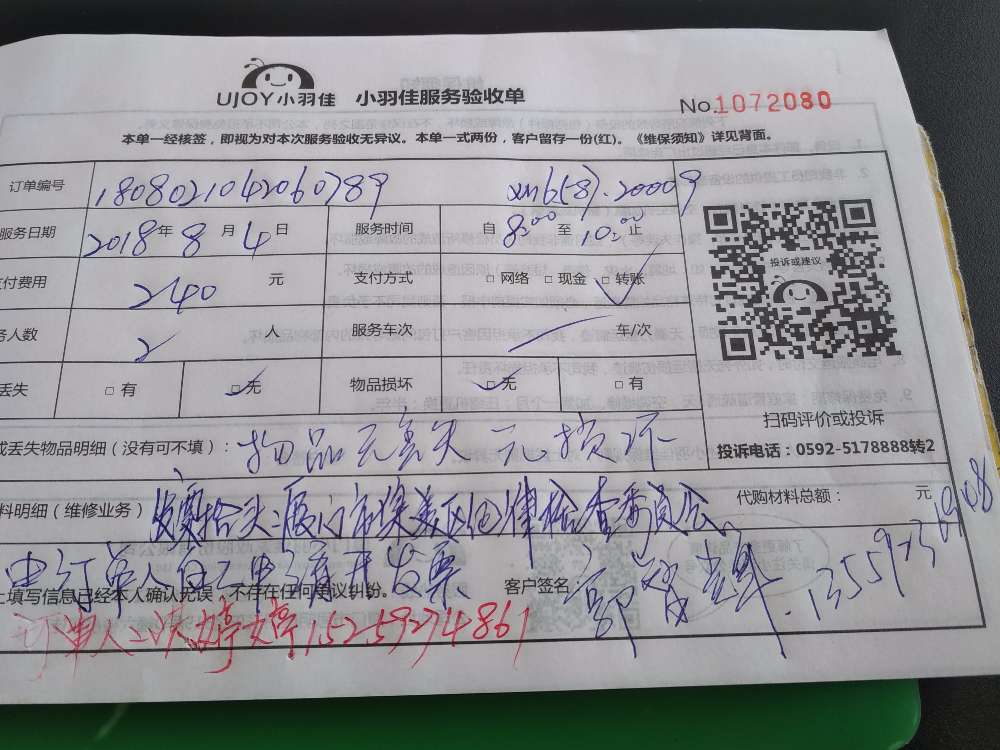 UJOY小羽佳 小羽佳服务验收单 No.1072080
本单一经核签，即视为对本次服务验收无异议。本单一式两份，客户留存一份(红)。《维保须知》详见背面。
订单编号 1808021042060789
服务日期 2018年8月4日 服务时间 自8:00至10:00止
付费用 240元 支付方式 □网络 □现金 □转账
务人数 2人 服务车次 车/次
丢失 □有 □无 物品损坏 □无 □有
投诉或建议
扫码评价或投诉
投诉电话：0592-5178888转2
或丢失物品明细（没有可不填）：物品无丢失 无损坏
料明细（维修业务） 发票抬头：厦门市集美区纪律检查委员会 代购材料总额： 元
由订单人自己申请开发票
上填写信息已经本人确认无误，不存在任何争议纠纷。 客户签名：郭
订单人 15259274861